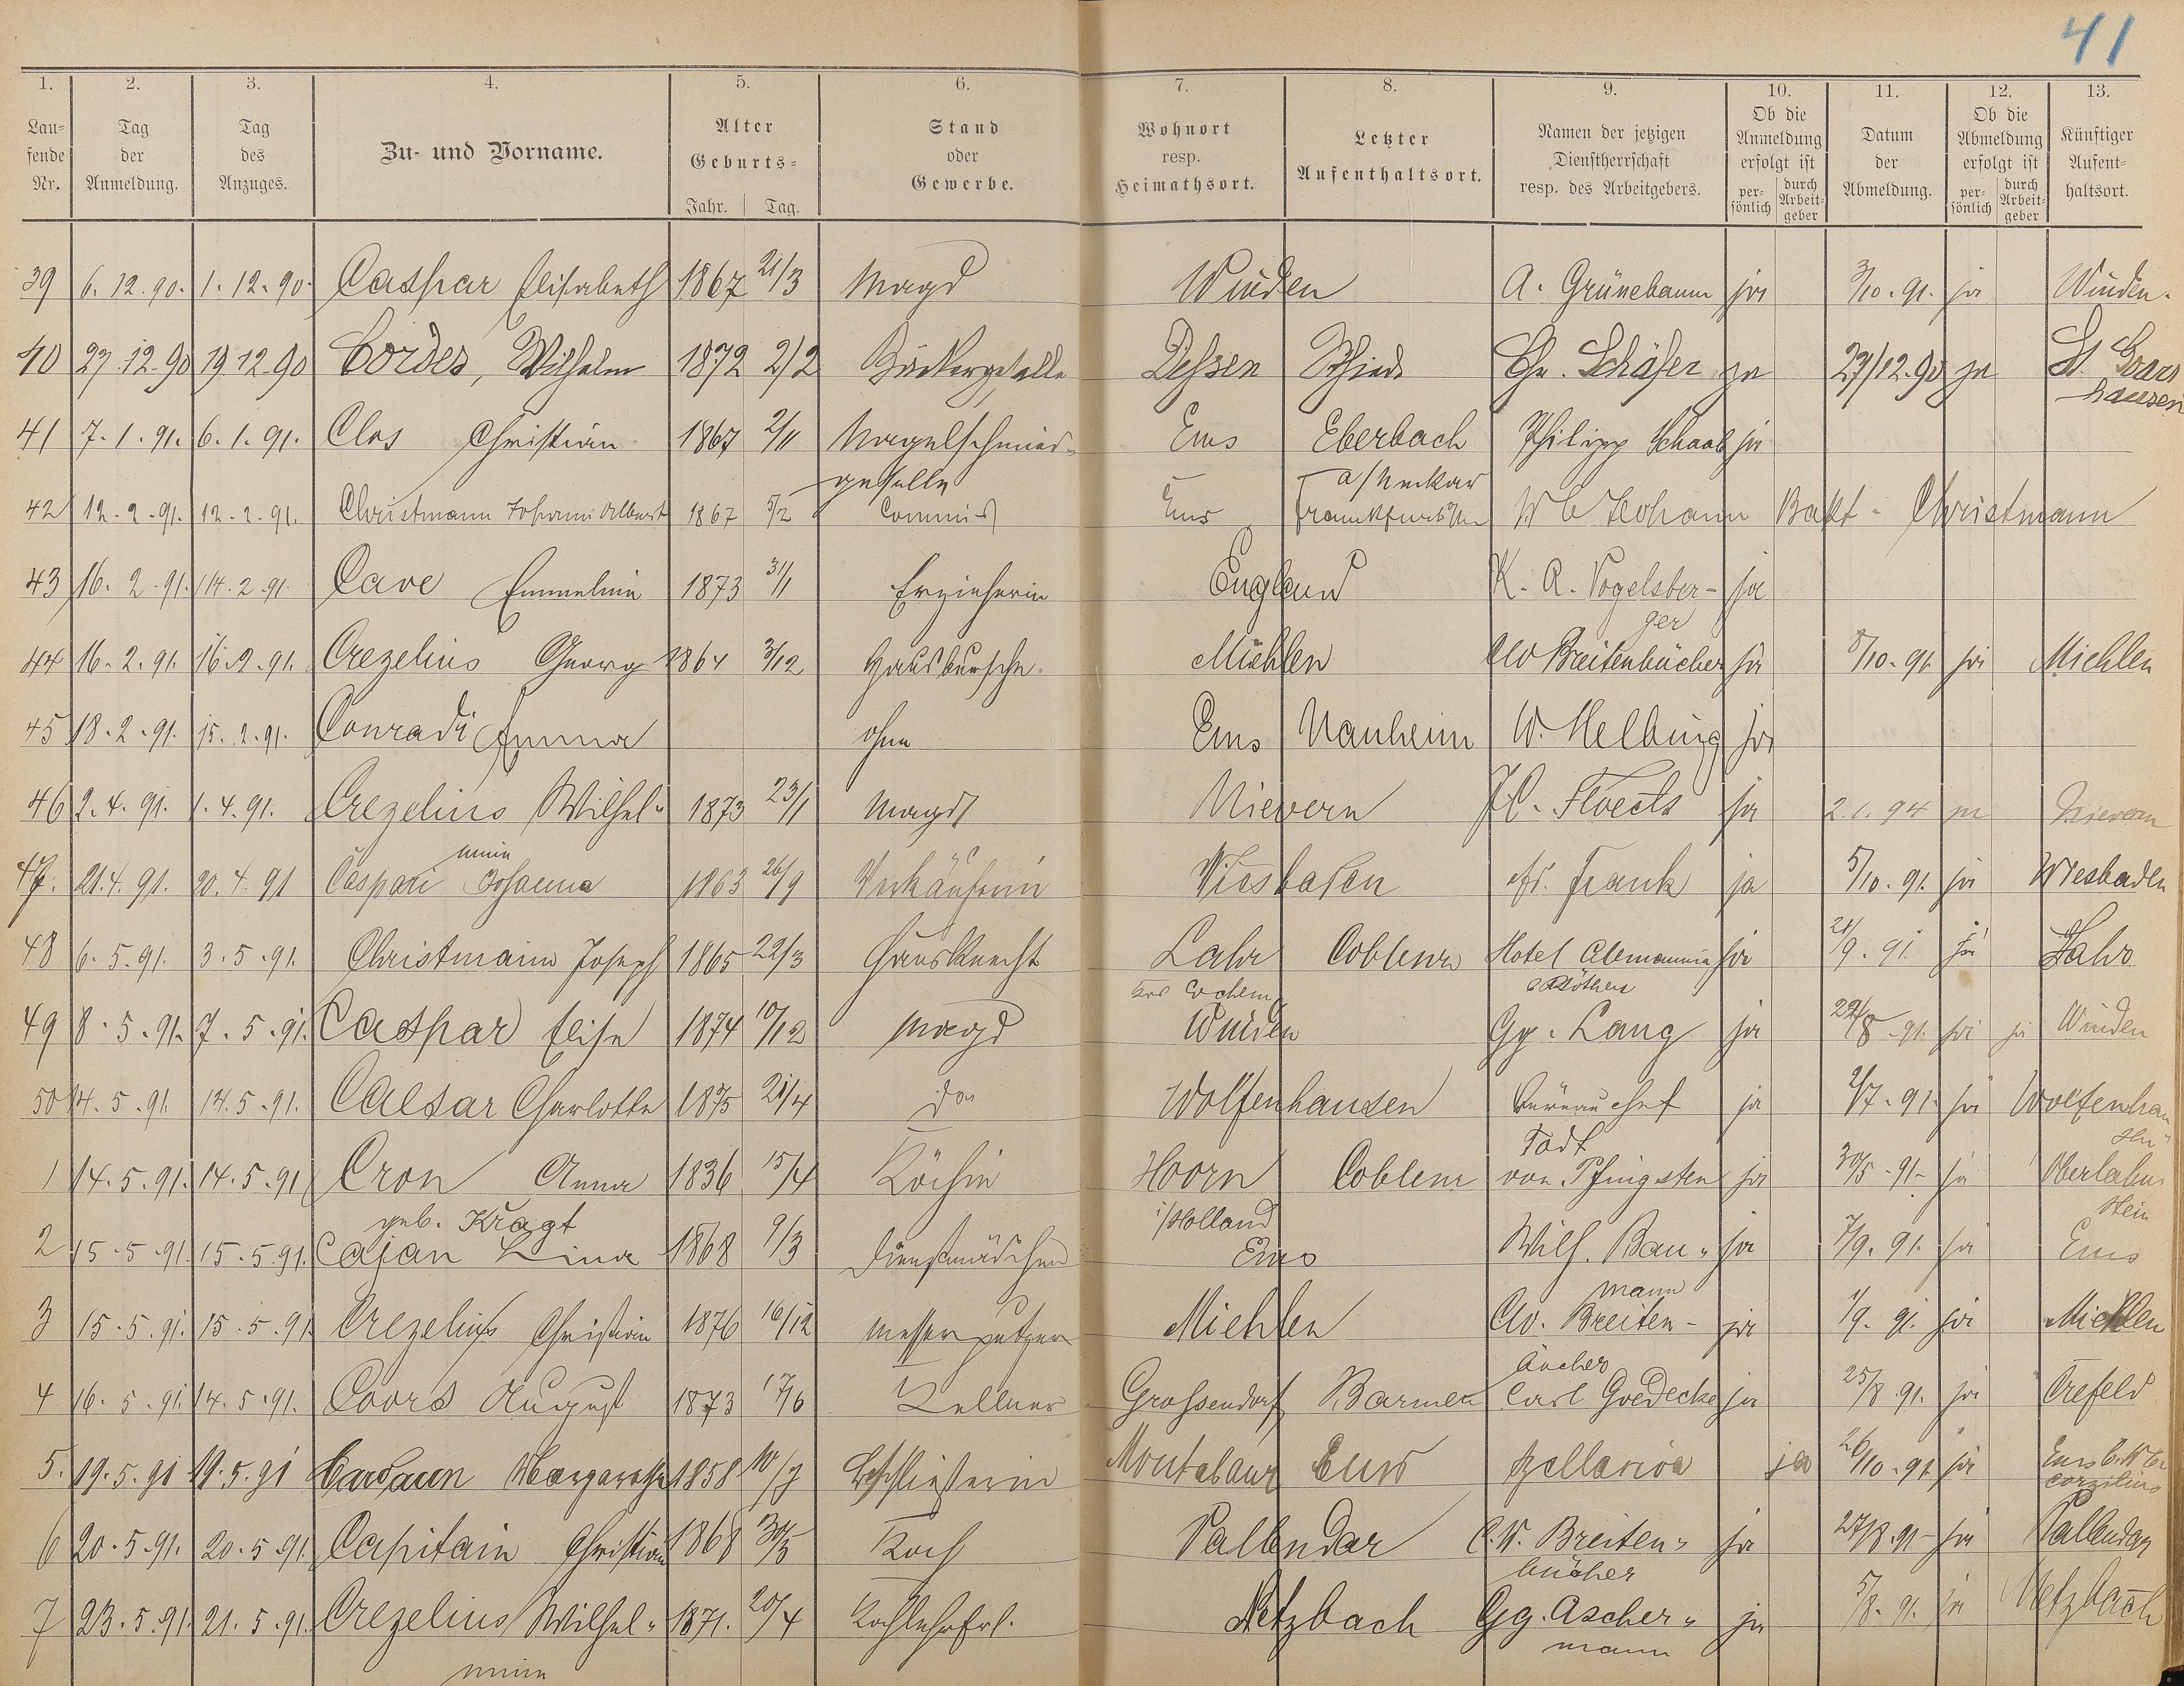 41
1. 2. 3. 4. 5. 6. 7. 8. 9. 10. 11. 12. 13.
Lau-
fende
Nr.
Tag
der
Anmeldung.
Tag
des
Anzuges.
Zu- und Vorname.
Alter
Geburts-
Jahr. Tag.
Stand
oder
Gewerbe.
Wohnort
resp.
Heimathsort.
Letzter
Aufenthaltsort.
Namen der jetzigen
Dienstherrschaft
resp. des Arbeitgebers.
Ob die
Anmeldung
erfolgt ist
per-
sönlich
durch
Arbeit-
geber
Datum
der
Abmeldung.
Ob die
Abmeldung
erfolgt ist
per-
sönlich
durch
Arbeit-
geber
Künftiger
Aufent-
haltsort.
39 6. 12. 90. 1. 12. 90. Caspar Elisabeth 1867 21/3 Magd Winden A. Grünebaum ja 3/10. 91. ja Winden.
40 27. 12. 90 19 12 90 Cordes, Wilhelm 1872 2/2 Bäckergeselle Dessen Chr. Schäfer ja 27/12. 90 ja St. Goars
hausen
41 7. 1. 91. 6. 1. 91. Clos Christian 1867 2/11 Nagelschmied- Ems Eberbach Philipp Schaab ja
geselle a/Neckar
42 12. 2. 91. 12. 2. 91. Christmann Johann Albert 1867 5/2 Commis Ems Frankfurt W Johann Bapt. Christmann
43 16. 2. 91. 14. 2. 91. Cave Emmeline 1873 31/1 Erzieherin England K. R. Vogelsber- ja
ger
44 16. 2. 91. 16. 2. 91. Crezelius Georg 1864 3/12 Hausbursche. Miehlen CW Breitenbücher ja 8/10. 91. ja Miehlen
45 18. 2. 91. 15. 2. 91. Conradi Emma ohne Ems Nauheim W. Helbing ja
46 2. 4. 91. 1. 4. 91. Crezelius Wilhel- 1873 23/1 Magd Nievern ja 2. 1. 94 ja Nievern
mine
47. 21. 4. 91. 20. 4. 91 Caspari Johanna 1863 26/9 Verkäuferin Wiesbaden Frank ja 5/10. 91. ja Wiesbaden
48 6. 5. 91. 3. 5. 91. Christmann Joseph 1865 22/3 Hausknecht Lahr Coblenz Hotel Alemannia ja 21/9. 91. ja Lahr
Krs Cochem
49 8. 5. 91. 7. 5. 91. Caspar Elise 1874 10/12 Magd Winden Gg. Lang ja 22/8. 91. ja ja Winden
50 14. 5. 91 14. 5. 91. Caesar Charlotte 1875 21/4 do Wolfenhausen Büreauchef ja 2/7. 91. ja Wolfenhau
Todt
1 14. 5. 91. 14. 5. 91 Cron Anna 1836 15/4 Köchin Hoorn Coblenz von Pfingsten ja 30/5. 91. ja Oberlahn-
geb. Kragt i/Holland stein
2 15. 5. 91. 15. 5. 91. Cajan Lina 1868 9/3 Dienstmädchen Ems Wilh. Bau- ja 7/9. 91. ja Ems
mann
3 15. 5. 91. 15. 5. 91. Crezelius Christian 1876 16/12 Messerputzer Miehlen CW. Breiten- ja 1/9. 91. ja Miehlen
bücher
4 16. 5. 91. 14. 5. 91. Coors August 1873 17/6 Kellner Grossendorf Barmen Carl Goedecke ja 25/8 91. ja Crefeld
5. 19. 5. 91 19. 5. 91 Margarethe 1858 10/7 Beschließerin Montabaur Ems ja 26/10. 91. ja Ems
6 20. 5. 91. 20. 5. 91. Capitain Christian 1868 30/5 Koch Vallendar C. W. Breiten- ja 27/8. 91. ja Vallendar
bücher
7 23. 5. 91. 21. 5. 91. Crezelius Wilhel- 1871. 20/4 Kochlehrfrl. Netzbach Gg. Ascher- ja 5/8. 91. ja Netzbach
mine mann